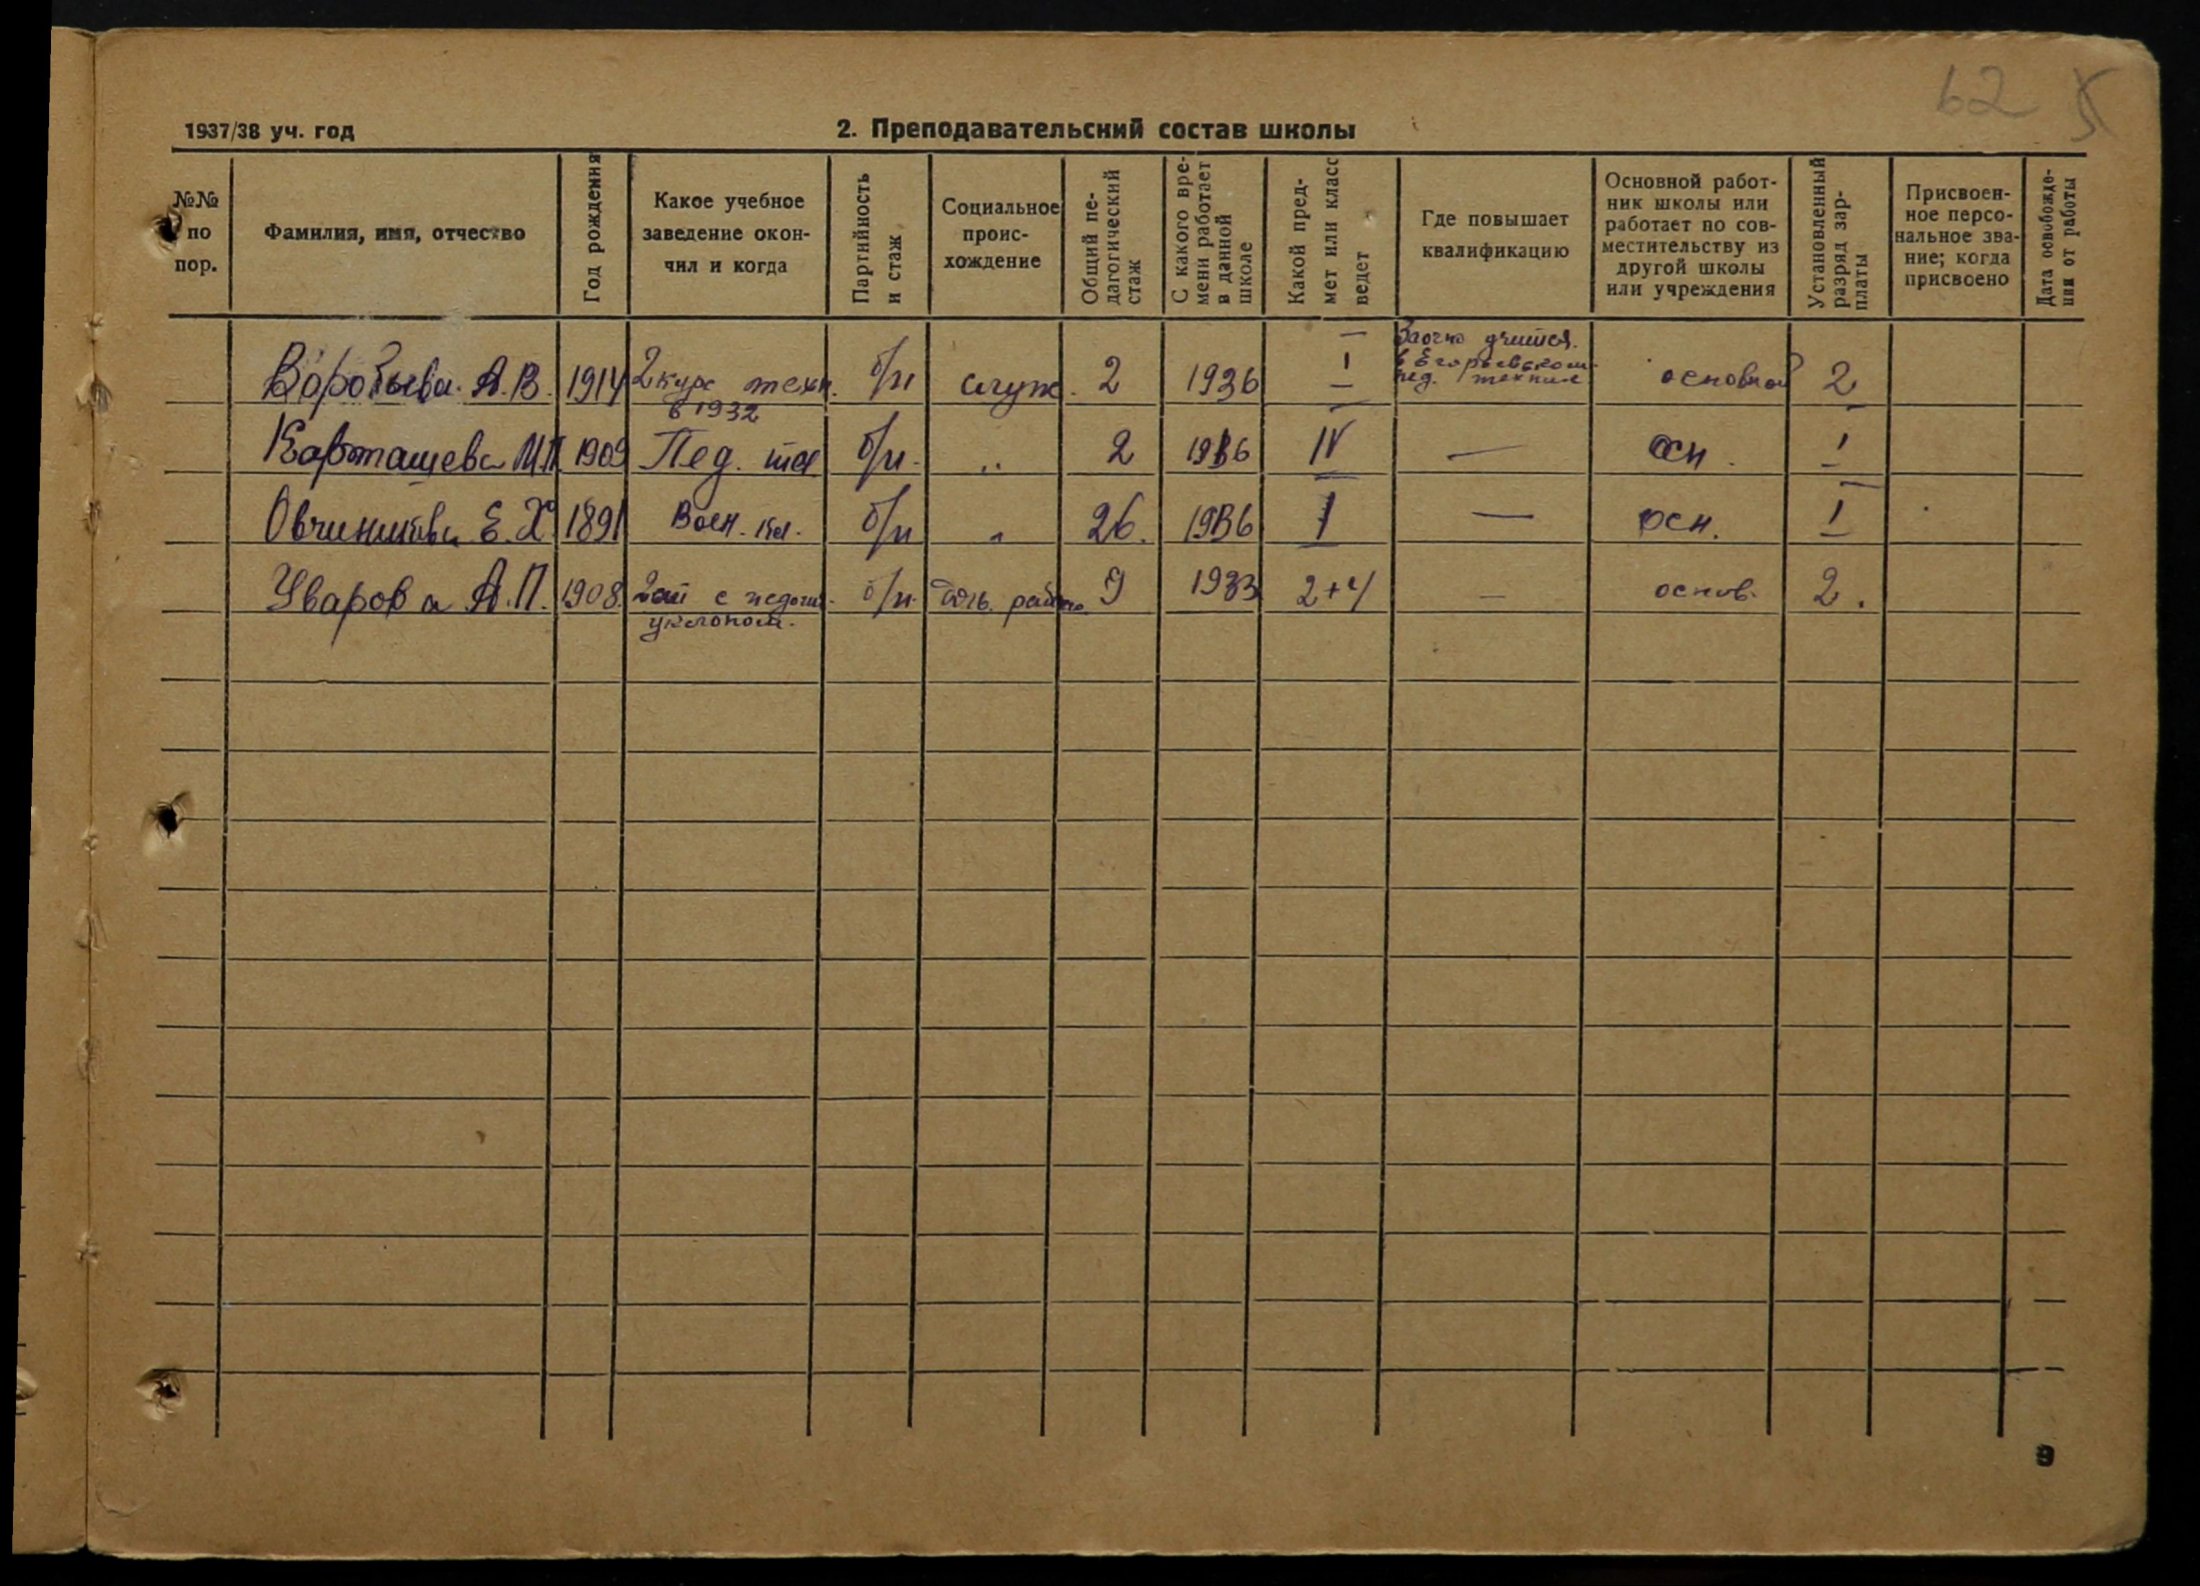 62
1937/38 уч. год
2. Преподавательский состав школы
№№ по пор.
Фамилия, имя, отчество
Год рождения
Какое учебное заведение окон-
чил и когда
Партийность и стаж
Социальное проис-
хождение
Общий пе-
дагогический стаж
С какого вре-
мени работает в данной школе
Какой пред-
мет или класс ведет
Где повышает квалификацию
Основной работ-
ник школы или работает по сов-
местительству из другой школы или учреждения
Установленный разряд зар-
платы
Присвоен-
ное персо-
нальное зва-
ние; когда присвоено
Дата освобожде-
ния от работы
Воробьева А.В. 1914 2 курс техн. б/п служ. 2 1936 I Заочно учится основной 2
в 1932 в Егорьевском
пед. техник
Карташева М.П. 1909 Пед. тех б/п. „ 2 1936 IV — осн. I
Овчинникова Е.Х. 1891 б/п „ 26. 1936 I — осн. I
Уварова А.П. 1908. 2 ст с педаг. б/п. 9 1933 2+4 — основ. 2.
уклоном.
9